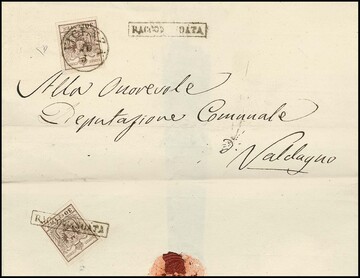 VICENZA
RACCOMANDATA
Alla Onorevole
Deputazione Comunale
di
Valdagno
RACCOMANDATA